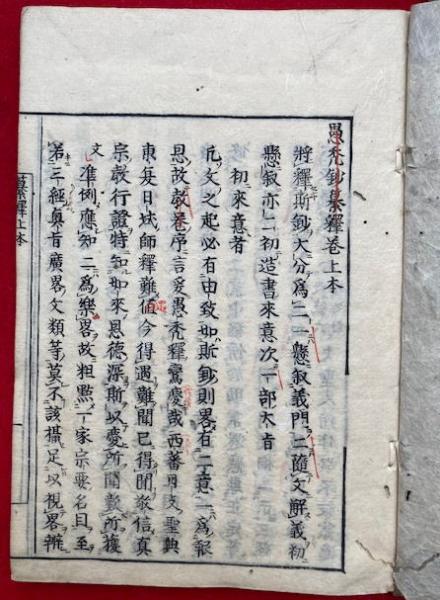 愚禿鈔纂釋卷上本
將釋斯鈔大分爲二一懸叙義門二隨文解義初
懸叙亦二初造書來意次一部大旨
初來意者
凡文之起必有由致如斯鈔則畧有二意一爲報
恩故教卷序言爰愚禿釋鸞慶哉西蕃月支聖典
東夏日域師釋難値今得遇難聞已得聞敬信眞
宗教行證特知如來恩德深斯以慶所聞嘆所獲
文准例應知二爲樂畧故粗點一家宗要名目至
第三經奥旨廣畧文類等莫不該攝足以視畧辨
纂釋上本